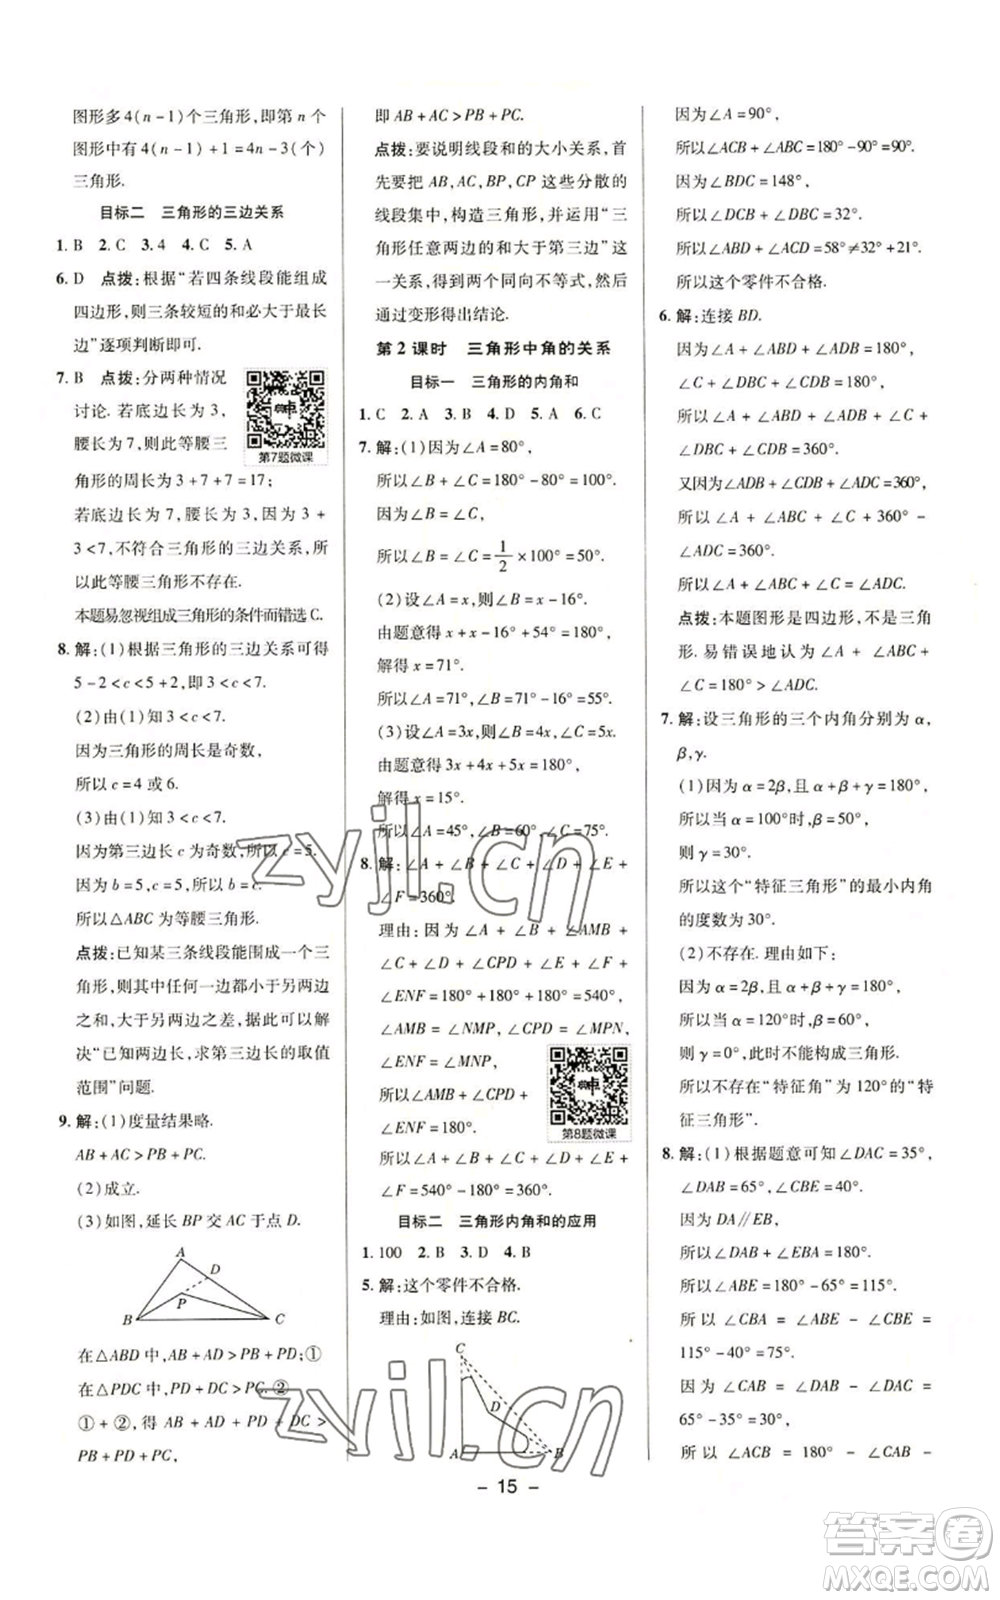 图形多4(n-1)个三角形,即第n个
图形中有4(n-1)+1=4n-3(个)
三角形.
目标二 三角形的三边关系
1. B 2. C 3. 4 4. C 5. A
6. D 点拨:根据“若四条线段能组成
四边形,则三条较短的和必大于最长
边”逐项判断即可.
7. B 点拨:分两种情况
讨论. 若底边长为3,
腰长为7,则此等腰三
角形的周长为3+7+7=17;
第7题微课
若底边长为7,腰长为3,因为3+
3<7,不符合三角形的三边关系,所
以此等腰三角形不存在.
本题易忽视组成三角形的条件而错选C.
8. 解:(1)根据三角形的三边关系可得
5-2<c<5+2,即3<c<7.
(2)由(1)知3<c<7.
因为三角形的周长是奇数,
所以c=4或6.
(3)由(1)知3<c<7.
因为第三边长c为奇数,所以c=5.
因为b=5,c=5,所以b=c.
所以△ABC为等腰三角形.
点拨:已知某三条线段能围成一个三
角形,其中任何一边都小于另两边
之和,大于另两边之差,由此可以解
决“已知两边长,求第三边长的取值
范围”问题.
9. 解:(1)度量结果略.
AB+AC>PB+PC.
(2)成立.
(3)如图,延长BP交AC于点D.
A
D
P
B
C
在△ABD中,AB+AD>BD;①
在△PDC中,PD+DC>PC.②
①+②,得AB+AD+PD+DC>
PB+PD+PC,
即AB+AC>PB+PC.
点拨:要说明线段和的大小关系,首
先要把AB,AC,BP,CP这些分散的
线段集中,构造三角形,应用“三
角形任意两边的和大于第三边”这
一关系,得到两个同向不等式,然后
通过变形得出结论.
第2课时 三角形中角的关系
目标一 三角形的内角和
1. C 2. A 3. B 4. D 5. A 6. C
7. 解:(1)因为∠A=80°,
所以∠B+∠C=180°-80°=100°.
因为∠B=∠C,
所以∠B=∠C=1/2×100°=50°.
(2)设∠A=x,则∠B=x-16°.
由题意得x+x-16°+54°=180°,
解得x=71°.
所以∠A=71°,∠B=71°-16°=55°.
(3)设∠A=3x,则∠B=4x,∠C=5x.
由题意得3x+4x+5x=180°,
解得x=15°.
所以∠A=45°,∠B=60°,∠C=75°.
8. 解:∠A+∠B+∠C+∠D+∠E+
∠F=360°.
理由:因为∠A+∠B+∠AMB
+∠C+∠D+∠CPD+∠E+∠F+
∠ENF=180°+180°+180°=540°,
∠AMB=∠NMP,∠CPD=∠MPN,
∠ENF=∠MNP,
所以∠AMB+∠CPD+
∠ENF=180°.
第8题微课
所以∠A+∠B+∠C+∠D+∠E+
∠F=540°-180°=360°.
目标二 三角形内角和的应用
1. 100 2. B 3. D 4. B
5. 解:这个零件不合格.
理由:如图,连接BC.
C
D
A
B
因为∠A=90°,
所以∠ACB+∠ABC=180°-90°=90°.
因为∠BDC=148°,
所以∠DCB+∠DBC=32°.
所以∠ABD+∠ACD=58°≠32°+21°.
所以这个零件不合格.
6. 解:连接BD.
因为∠A+∠ABD+∠ADB=180°,
∠C+∠CBD+∠CDB=180°,
所以∠A+∠ABD+∠ADB+∠C+
∠DBC+∠CDB=360°.
又因为∠ABC+∠ADB+∠CDB+∠ADC=360°,
所以∠A+∠ABC+∠C+360°-
∠ADC=360°.
所以∠A+∠ABC+∠C=∠ADC.
点拨:本题图形是四边形,不是三角
形. 易错误地认为∠A+∠ABC+
∠C=180°>∠ADC.
7. 解:设三角形的三个内角分别为α,
β,γ.
(1)因为α=2β,且α+β+γ=180°,
所以当α=100°时,β=50°,
则γ=30°.
所以这个“特征三角形”的最小内角
的度数为30°.
(2)不存在. 理由如下:
因为α=2β,且α+β+γ=180°,
所以当α=120°时,β=60°,
则γ=0°,此时不能构成三角形.
所以不存在“特征角”为120°的“特
征三角形”.
8. 解:(1)根据题意可知∠DAC=35°,
∠DAB=65°,∠CBE=40°.
因为DA∥EB,
所以∠DAB+∠EBA=180°.
所以∠ABE=180°-65°=115°.
所以∠CBA=∠ABE-∠CBE=
115°-40°=75°.
因为∠CAB=∠DAB-∠DAC=
65°-35°=30°,
所以∠ACB=180°-∠CAB-
- 15 -
zyjl.cn
zyjl.cn
答案圈
MXQE.COM